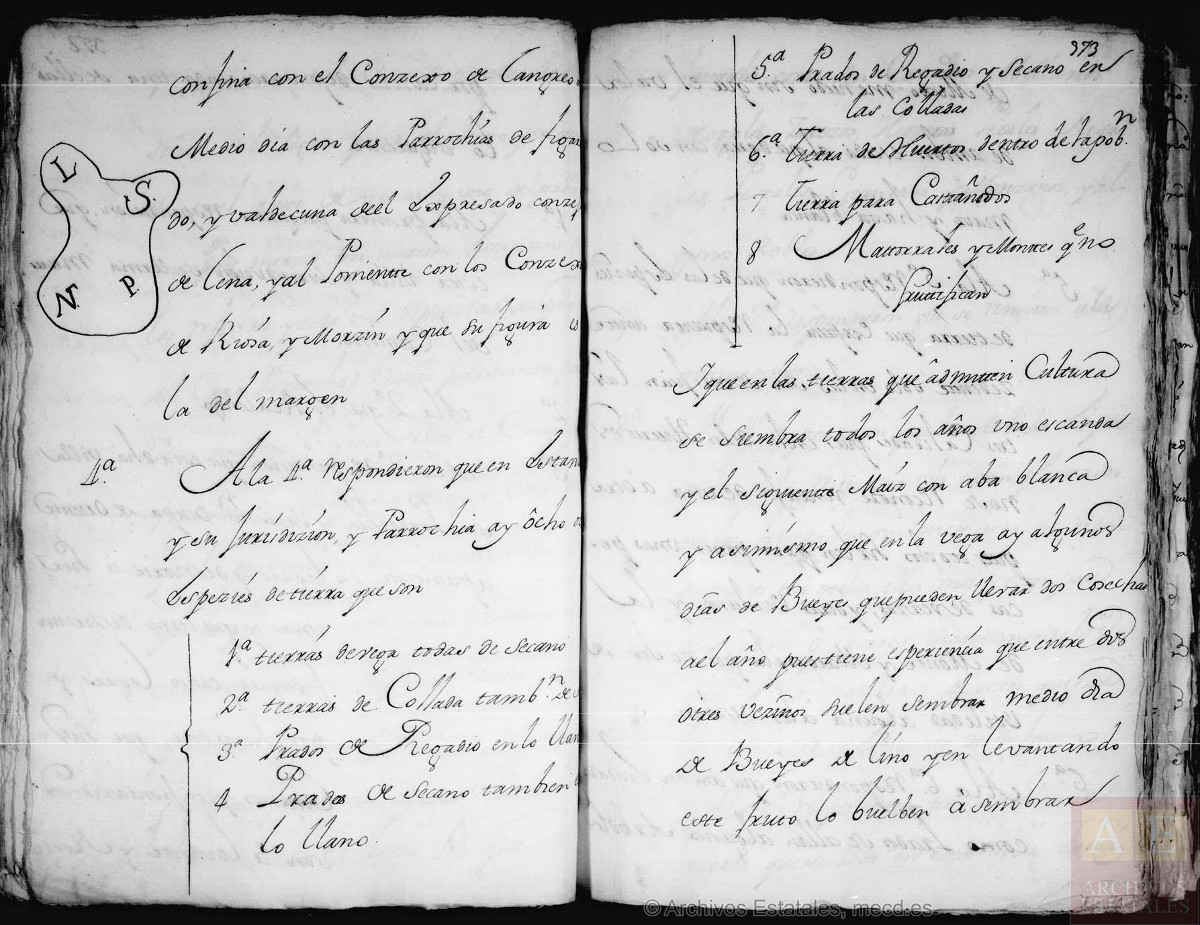 confina con el Conzexo de Langreo
Medio dia con las Parrochias de figa
do, y valdecuna del Expresado conze
de Lena, y al Poniente con los Conzex
de Riosa, y Morzin y que su figura es
la del margen
L
S.
N
P
4ª.
A la 4ª. respondieron que en Esta
y su Jurisdizion, y Parrochia ay ôcho
Espezies de tierra que son
1ª tierras de vega todas de secano
2ª tierras de Collada tambⁿ. de
3ª. Prados de Regadio en lo llan
4 Prados de secano tambien
lo llano.
373
5ª. Prados de Regadio y Secano en
las Colladas
6ª. Tierra de Huertos dentro de la pobⁿ.
7 Tierra para Castañedos
8 Mattorrales y Montes qᵉ no
fructifican
Y que en las tierras que âdmiten Cultura
se siembra todos los años uno escanda
y el siguiente Maiz con aba blanca
y asimismo que en la vega ay algunos
dias de Bueyes que pueden llevar dos cosechas
ael año pues tiene esperiencia que entre dos
otres vezinos suelen sembrar medio dia
de Bueyes de lino y en levantando
este fruto lo buelben a sembrar
© Archivos Estatales, mecd.es
A E
ARCHIVOS
ESTATALES